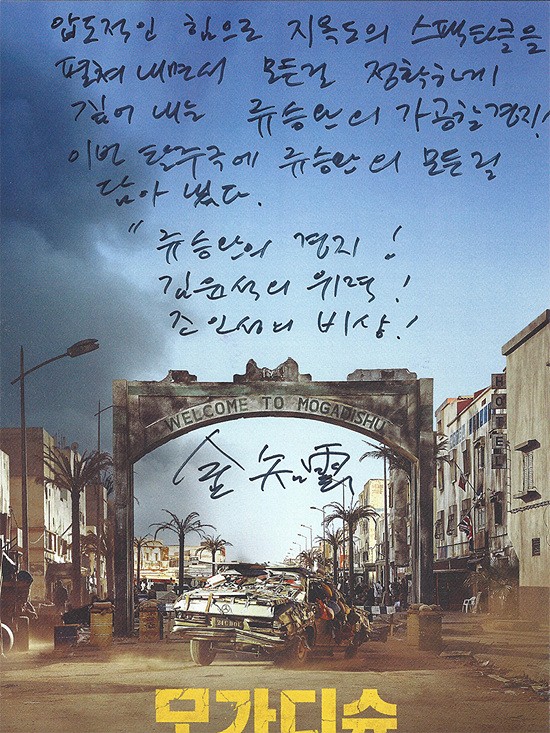 압도적인 힘으로 지옥도의 스펙타클을
펼쳐 내면서 모든걸 정확하게
짚어 내는 류승완의 가공할경지!
이번 탈주극에 류승완의 모든걸
담아 냈다.
" 류승완의 경지 !
김윤석의 위력 !
조인성의 비상 !
WELCOME TO MOGADISHU
HOTEL
金知雲
모가디슈